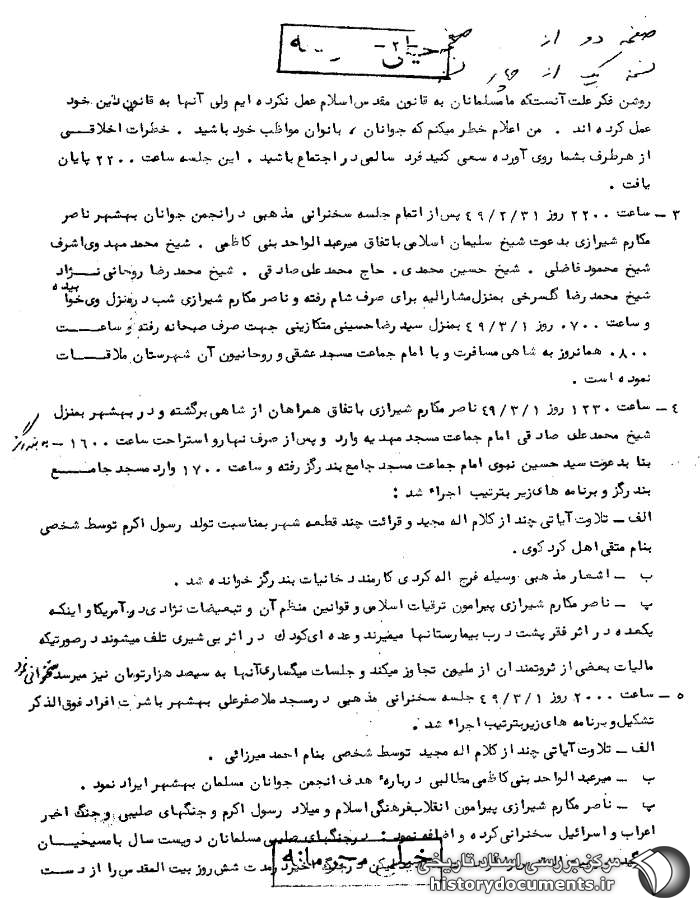 صفحه دو از صفحه
-۲۱-
نسخه یک از چهار نسخه
روشن فکر علت آنستکه ما مسلمانان به قانون مقدس اسلام عمل نکرده ایم ولی آنها به قانون دین خود
عمل کرده اند . من اعلام خطر میکنم که جوانان ، بانوان مواظب خود باشید . خطرات اخلاقی
از هر طرف بشما روی آورده سعی کنید فرد سالمی در اجتماع باشید . این جلسه ساعت ۲۲۰۰ پایان
یافت .
۳ – ساعت ۲۲۰۰ روز ۴۹/۲/۳۱ پس از اتمام جلسه سخنرانی مذهبی در انجمن جوانان بهشهر ناصر
مکارم شیرازی بدعوت شیخ سلیمان اسلامی باتفاق میرعبدالواحد بنی کاظمی . شیخ محمد مهدوی اشرف
شیخ محمود فاضلی . شیخ حسین محمدی. حاج محمد علی صادقی . شیخ محمد رضا روحانی نژاد
شیخ محمد رضا گلسرخی بمنزل مشارالیه برای صرف شام رفته و ناصر مکارم شیرازی شب در منزل وی خوابیده
و ساعت ۰۷۰۰ روز ۴۹/۳/۱ بمنزل سید رضا حسینی متکازینی جهت صرف صبحانه رفته و ساعت
۰۸۰۰ همانروز به شاهی مسافرت و با امام جماعت مسجد عشقی و روحانیون آن شهرستان ملاقات
نموده است .
۴ – ساعت ۱۲۳۰ روز ۴۹/۳/۱ ناصر مکارم شیرازی باتفاق همراهان از شاهی برگشته و در بهشهر بمنزل
شیخ محمد علی صادقی امام جماعت مسجد مهدیه وارد و پس از صرف نهار و استراحت ساعت ۱۶۰۰ – به بندر گز
بنا بدعوت سید حسین نبوی امام جماعت مسجد جامع بندر گز رفته و ساعت ۱۷۰۰ وارد مسجد جامع
بندر گز و برنامه های زیر بترتیب اجراء شد :
الف – تلاوت آیاتی چند از کلام اله مجید و قرائت چند قطعه شهر بمناسبت تولد رسول اکرم توسط شخصی
بنام متقی اهل کردکوی .
ب – اشعار مذهبی وسیله فرج اله کردی کارمند دخانیات بندر گز خوانده شد .
پ – ناصر مکارم شیرازی پیرامون ترقیات اسلامی و قوانین منظم آن و تبعیضات نژادی در آمریکا و اینکه
یکعده در اثر فقر پشت درب بیمارستانها میمیرند و عده ای کودک در اثر بی شیری تلف میشوند در صورتیکه
مالیات بعضی از ثروتمندان از ملیون تجاوز میکند و جلسات میگساری آنها به سیصد هزار تومان نیز میرسد سخنرانی نمود
۵ – ساعت ۲۰۰۰ روز ۴۹/۳/۱ جلسه سخنرانی مذهبی در مسجد ملاصفرعلی بهشهر با شرکت افراد فوق الذکر
تشکیل و برنامه های زیر بترتیب اجراء شد .
الف – تلاوت آیاتی چند از کلام اله مجید توسط شخصی بنام احمد میرزائی .
ب – میرعبدالواحد بنی کاظمی مطالبی درباره هدف انجمن جوانان مسلمان بهشهر ایراد نمود .
پ – ناصر مکارم شیرازی پیرامون انقلاب فرهنگی اسلام و میلاد رسول اکرم و جنگهای صلیبی و جنگ اخیر
اعراب و اسرائیل سخنرانی کرده و اضافه نمود : در جنگهای صلیبی مسلمانان دویست سال با مسیحیان
لیکن در جنگ اخیر در مدت شش روز بیت المقدس را از دست
خیلی محرمانه
مرکز بررسی اسناد تاریخی
historydocuments.ir